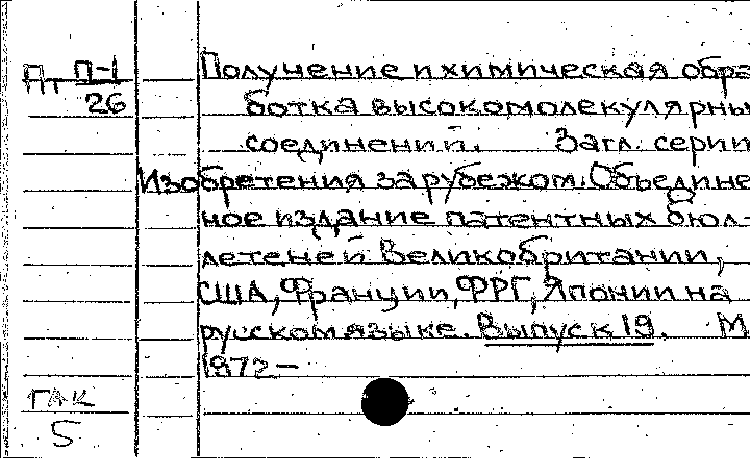 Пт П-1
26
Получение и химическая обра
ботка высокомолекулярны
соединений. Загл. серии
Изобретения за рубежом. Объедине
ное издание патентных бюл-
летеней Великобритании,
США, Франции, ФРГ, Японии на
русском языке. Выпуск 19. М
1972 —
ГАК
5